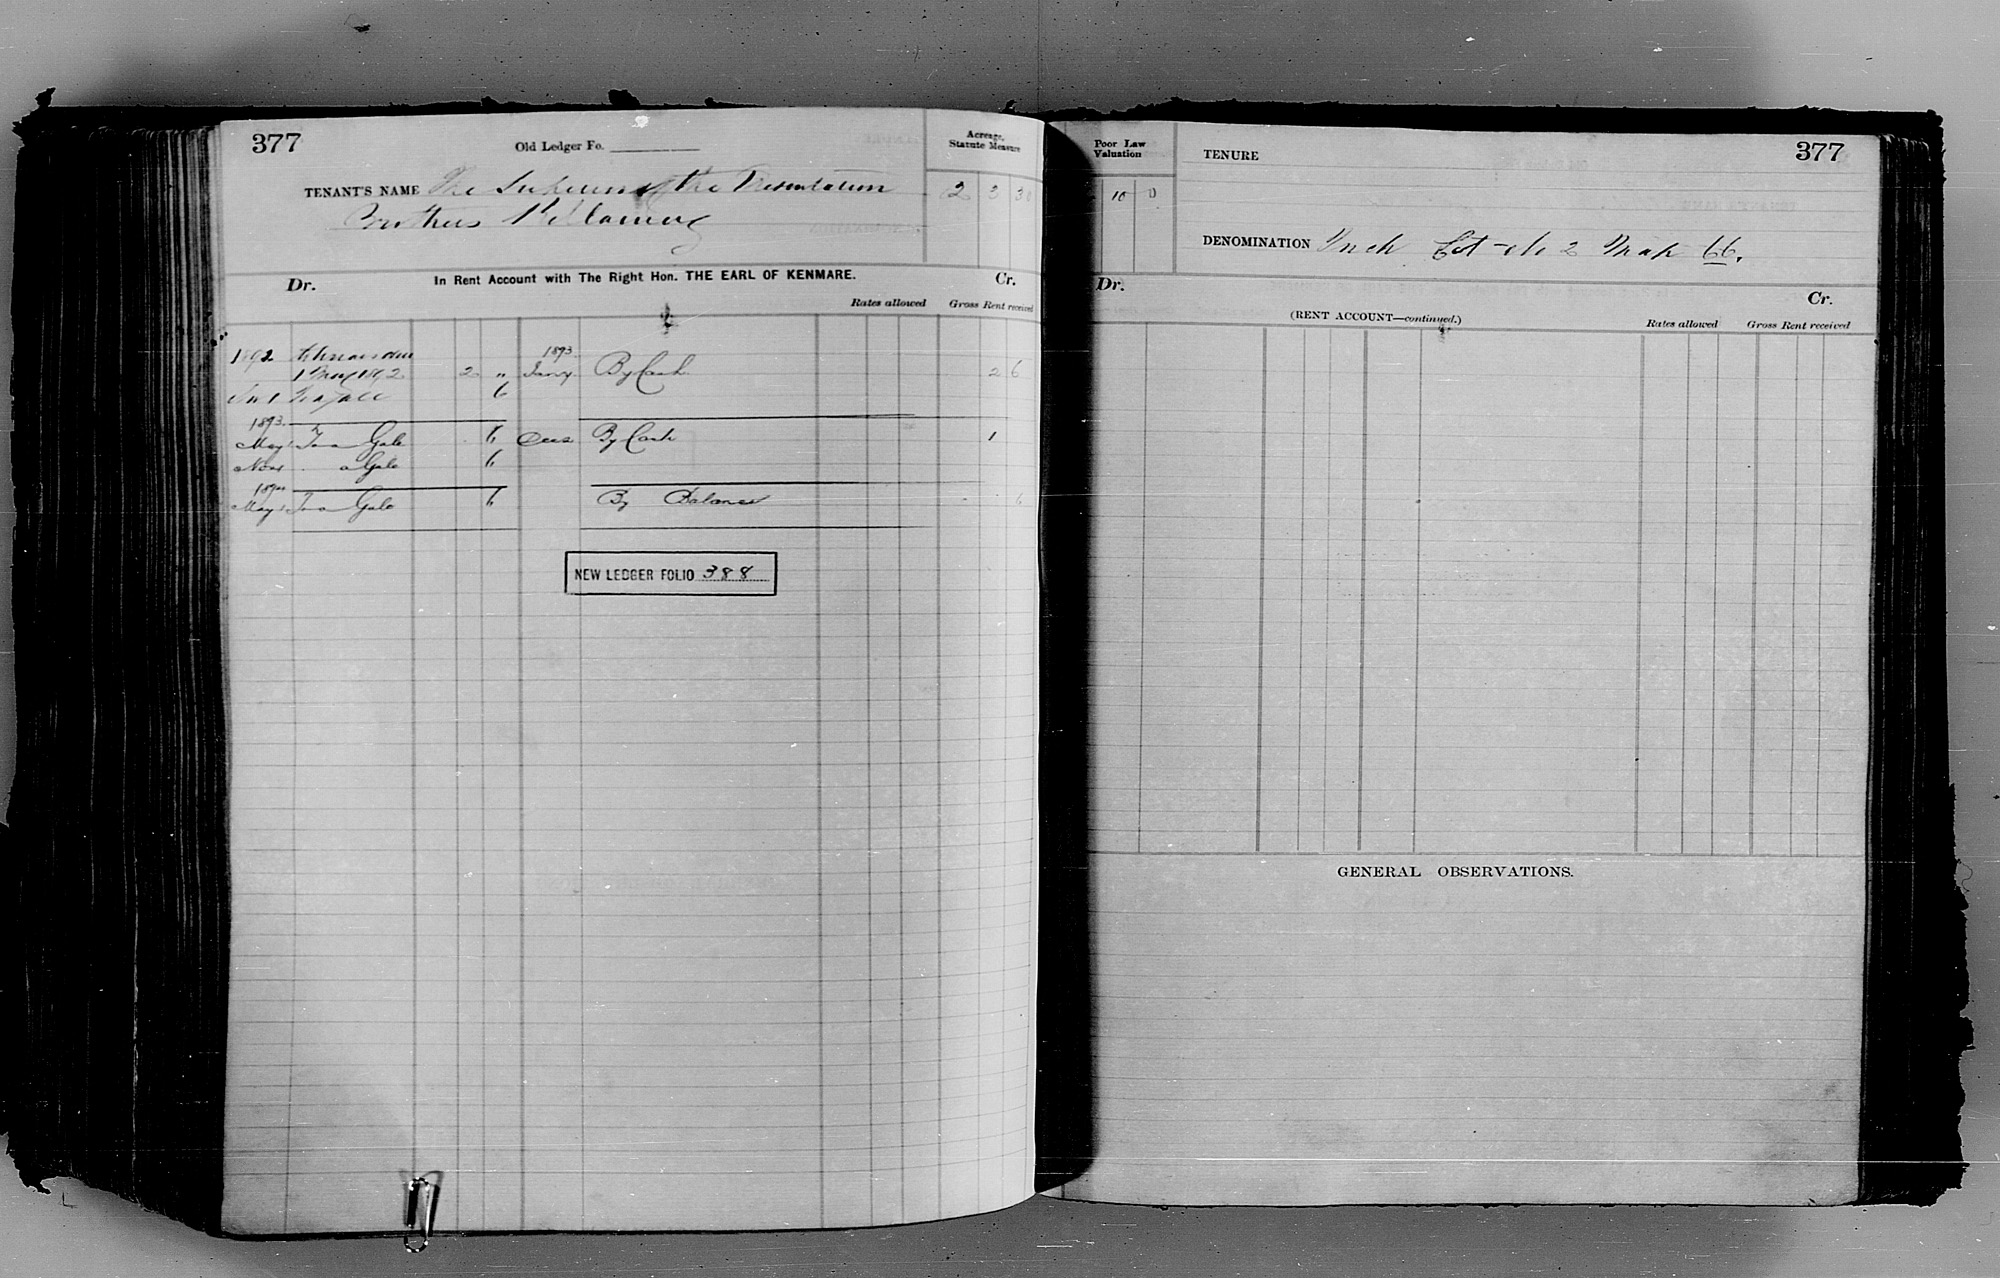 377
Old Ledger Fo.
Acreage, Statute Measure
TENANT'S NAME The Superior of the Presentation
Brothers Killarney
2 3 30
Dr. In Rent Account with The Right Hon. THE EARL OF KENMARE. Cr.
Rates allowed Gross Rent received
1892 1893
1 May 1892 2 " Jany. By Cash 2 6
6
1893
May To a Gale 6 By Cash 1
Novr a Gale 6
May To a Gale 6 By Balance 6
NEW LEDGER FOLIO 388
Poor Law Valuation
TENURE
377
10 0
DENOMINATION Inch Lot No 2 Map 66.
Dr. Cr.
(RENT ACCOUNT—continued.)
Rates allowed Gross Rent received
GENERAL OBSERVATIONS.